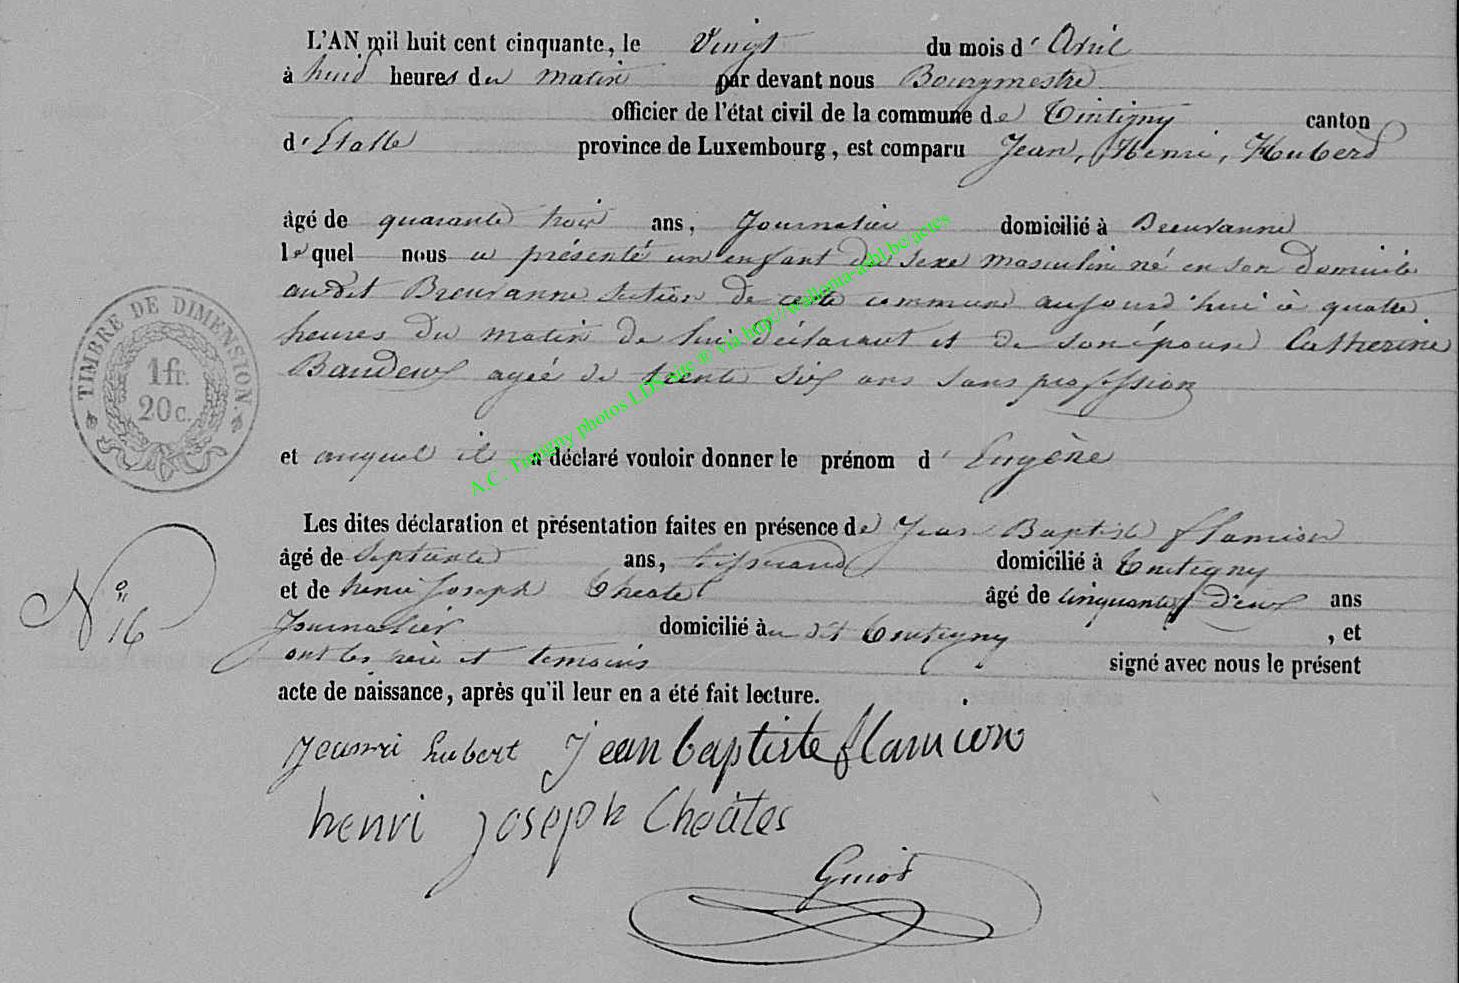 L'AN mil huit cent cinquante, le Vingt du mois d'Avril
à huit heures du matin par devant nous Bourgmestre
officier de l'état civil de la commune de Tintigny canton
d'Etalle province de Luxembourg, est comparu Jean, Henri, Hubert
âgé de quarante trois ans, Journalier domicilié à Breuvanne
lequel nous a présenté un enfant du sexe masculin né en son domicile
audit Breuvanne section de cette commune aujourd'hui à quatre
heures du matin de lui déclarant et de son épouse Catherine
Baudeux agée de trente six ans sans profession
TIMBRE DE DIMENSION.
1 fr.
20 c.
et auquel il a déclaré vouloir donner le prénom d'Eugène
Les dites déclaration et présentation faites en présence de Jean Baptiste flamion
âgé de septante ans, tisserand domicilié à Tintigny
et de henri Joseph Theatel âgé de cinquante deux ans
N° 16
Journalier domicilié au dit Tintigny, et
ont les père et temoins signé avec nous le présent
acte de naissance, après qu'il leur en a été fait lecture.
Jeanri hubert Jean baptiste flamion
henri joseph Cheâtes
Guiot
A.C. Tintigny photos LDS site ® via http://wallonia-asbl.be/actes